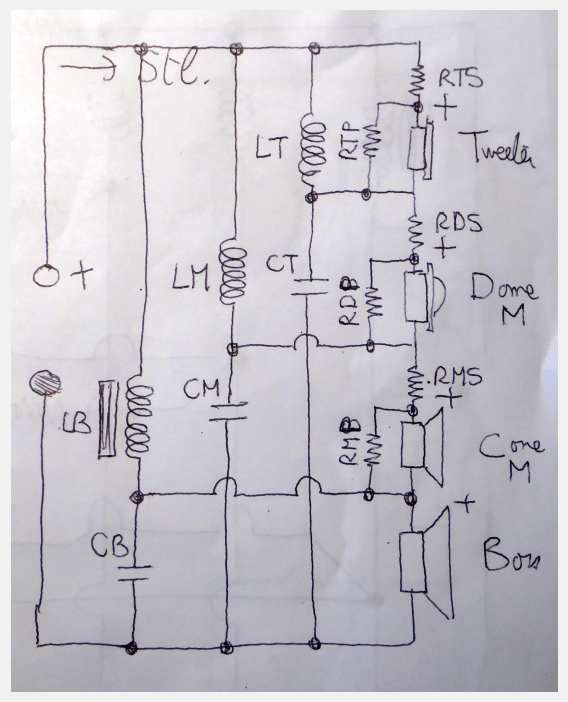 RTS
+
LT
RTP
Tweeter
RDS
+
CT
+
LM
RDP
Dome
M
RMS
+
CM
LB
RMP
Cone
M
+
CB
Bass